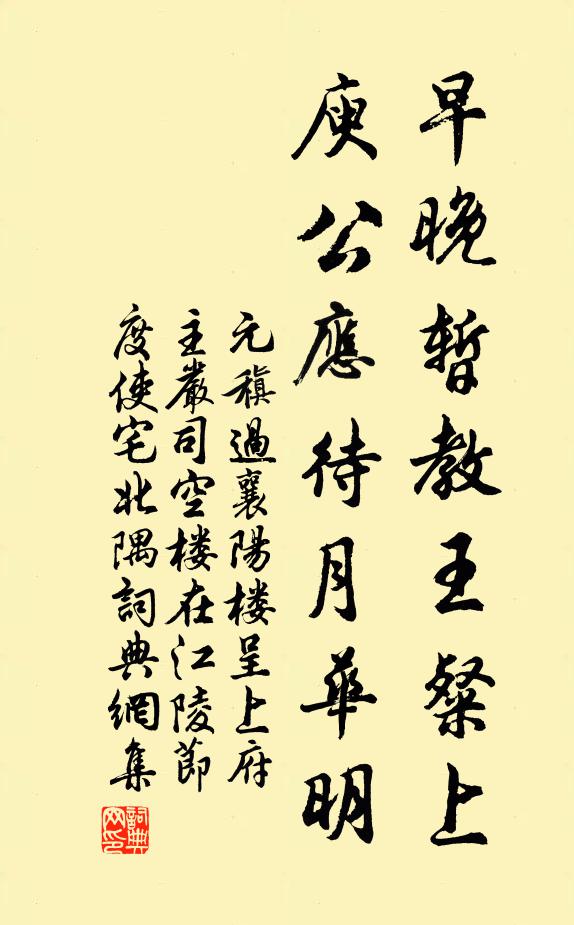 早晚暫教王粲上
庾公應待月華明
元稹過襄陽楼呈上府
主嚴司空楼在江陵節
度使宅北隅詞典網集
詞典网印